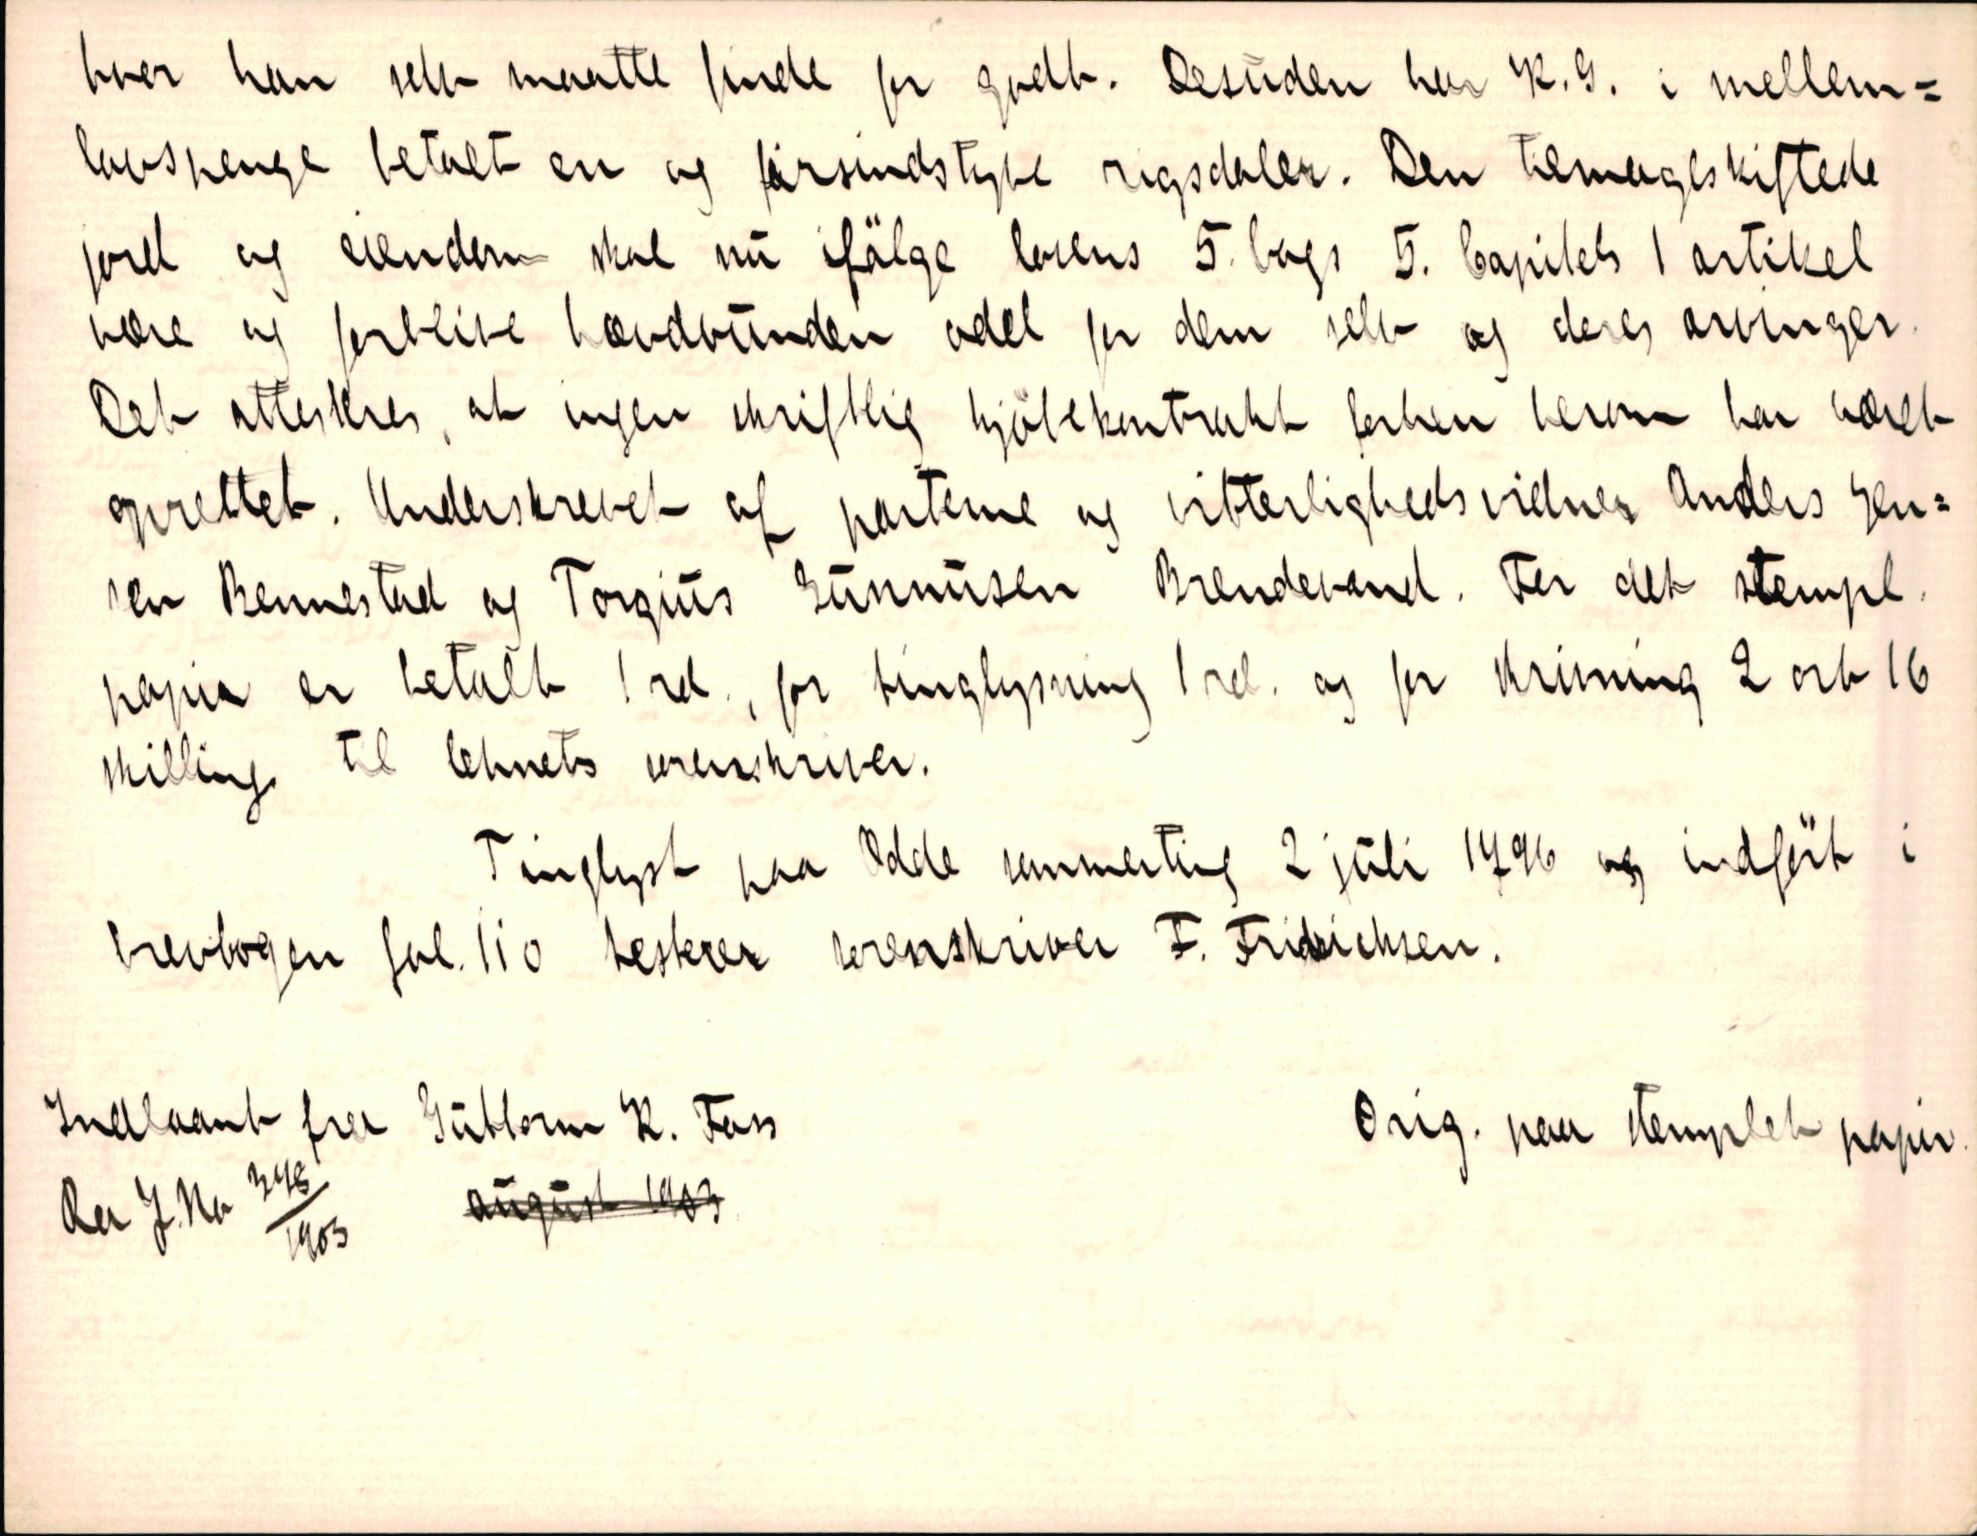 hvor han selv maatte finde for godt. Desuden har K.G. i mellem=
lavspenge betalt en og firsindstyve rigsdaler. Den tilmageskiftede
jord og eiendom skal nu ifälge lovens 5. bogs 5. Capitels 1 artikel
være og forblive hævdvunden odel for dem selv og deres arvinger.
Det atteskres, at ingen skriftlig kjöbekontrakt forhen herom har været
oprettet. Underskrevet af parterne og vitterlighedsvidner Anders Jen=
sen Rennestad og Torgius Gunnusen Brendevand. For det stempl.
papir er betalt 1 rd., for tinglysning 1 rd. og for skrivning 2 ort 16
skilling til lehnets sorenskriver.
Tinglyst paa Odde sommerting 2 juli 1796 og indfört i
brevbogen fol. 110 testerer sorenskriver F. Fridrichsen.
Indlaant fra Guttorm K. Foss
Orig. paa stemplet papir.
Ra J.No 348/1903
august 1903